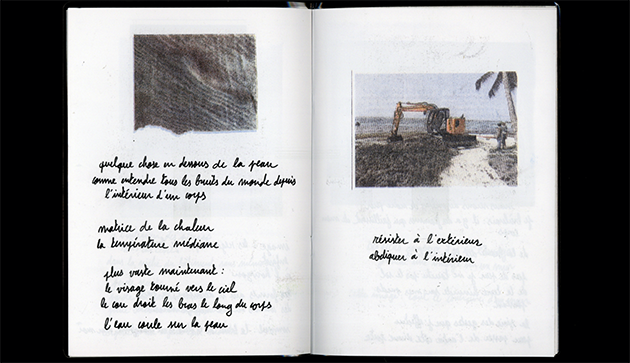 quelque chose en dessous de la peau
comme entendre tous les bruits du monde depuis
l'intérieur d'un corps
matrice de la chaleur
la température médiane
plus vaste maintenant :
le visage tourné vers le ciel
le cou droit les bras le long du corps
l'eau coule sur la peau
résister à l'extérieur
abdiquer à l'intérieur